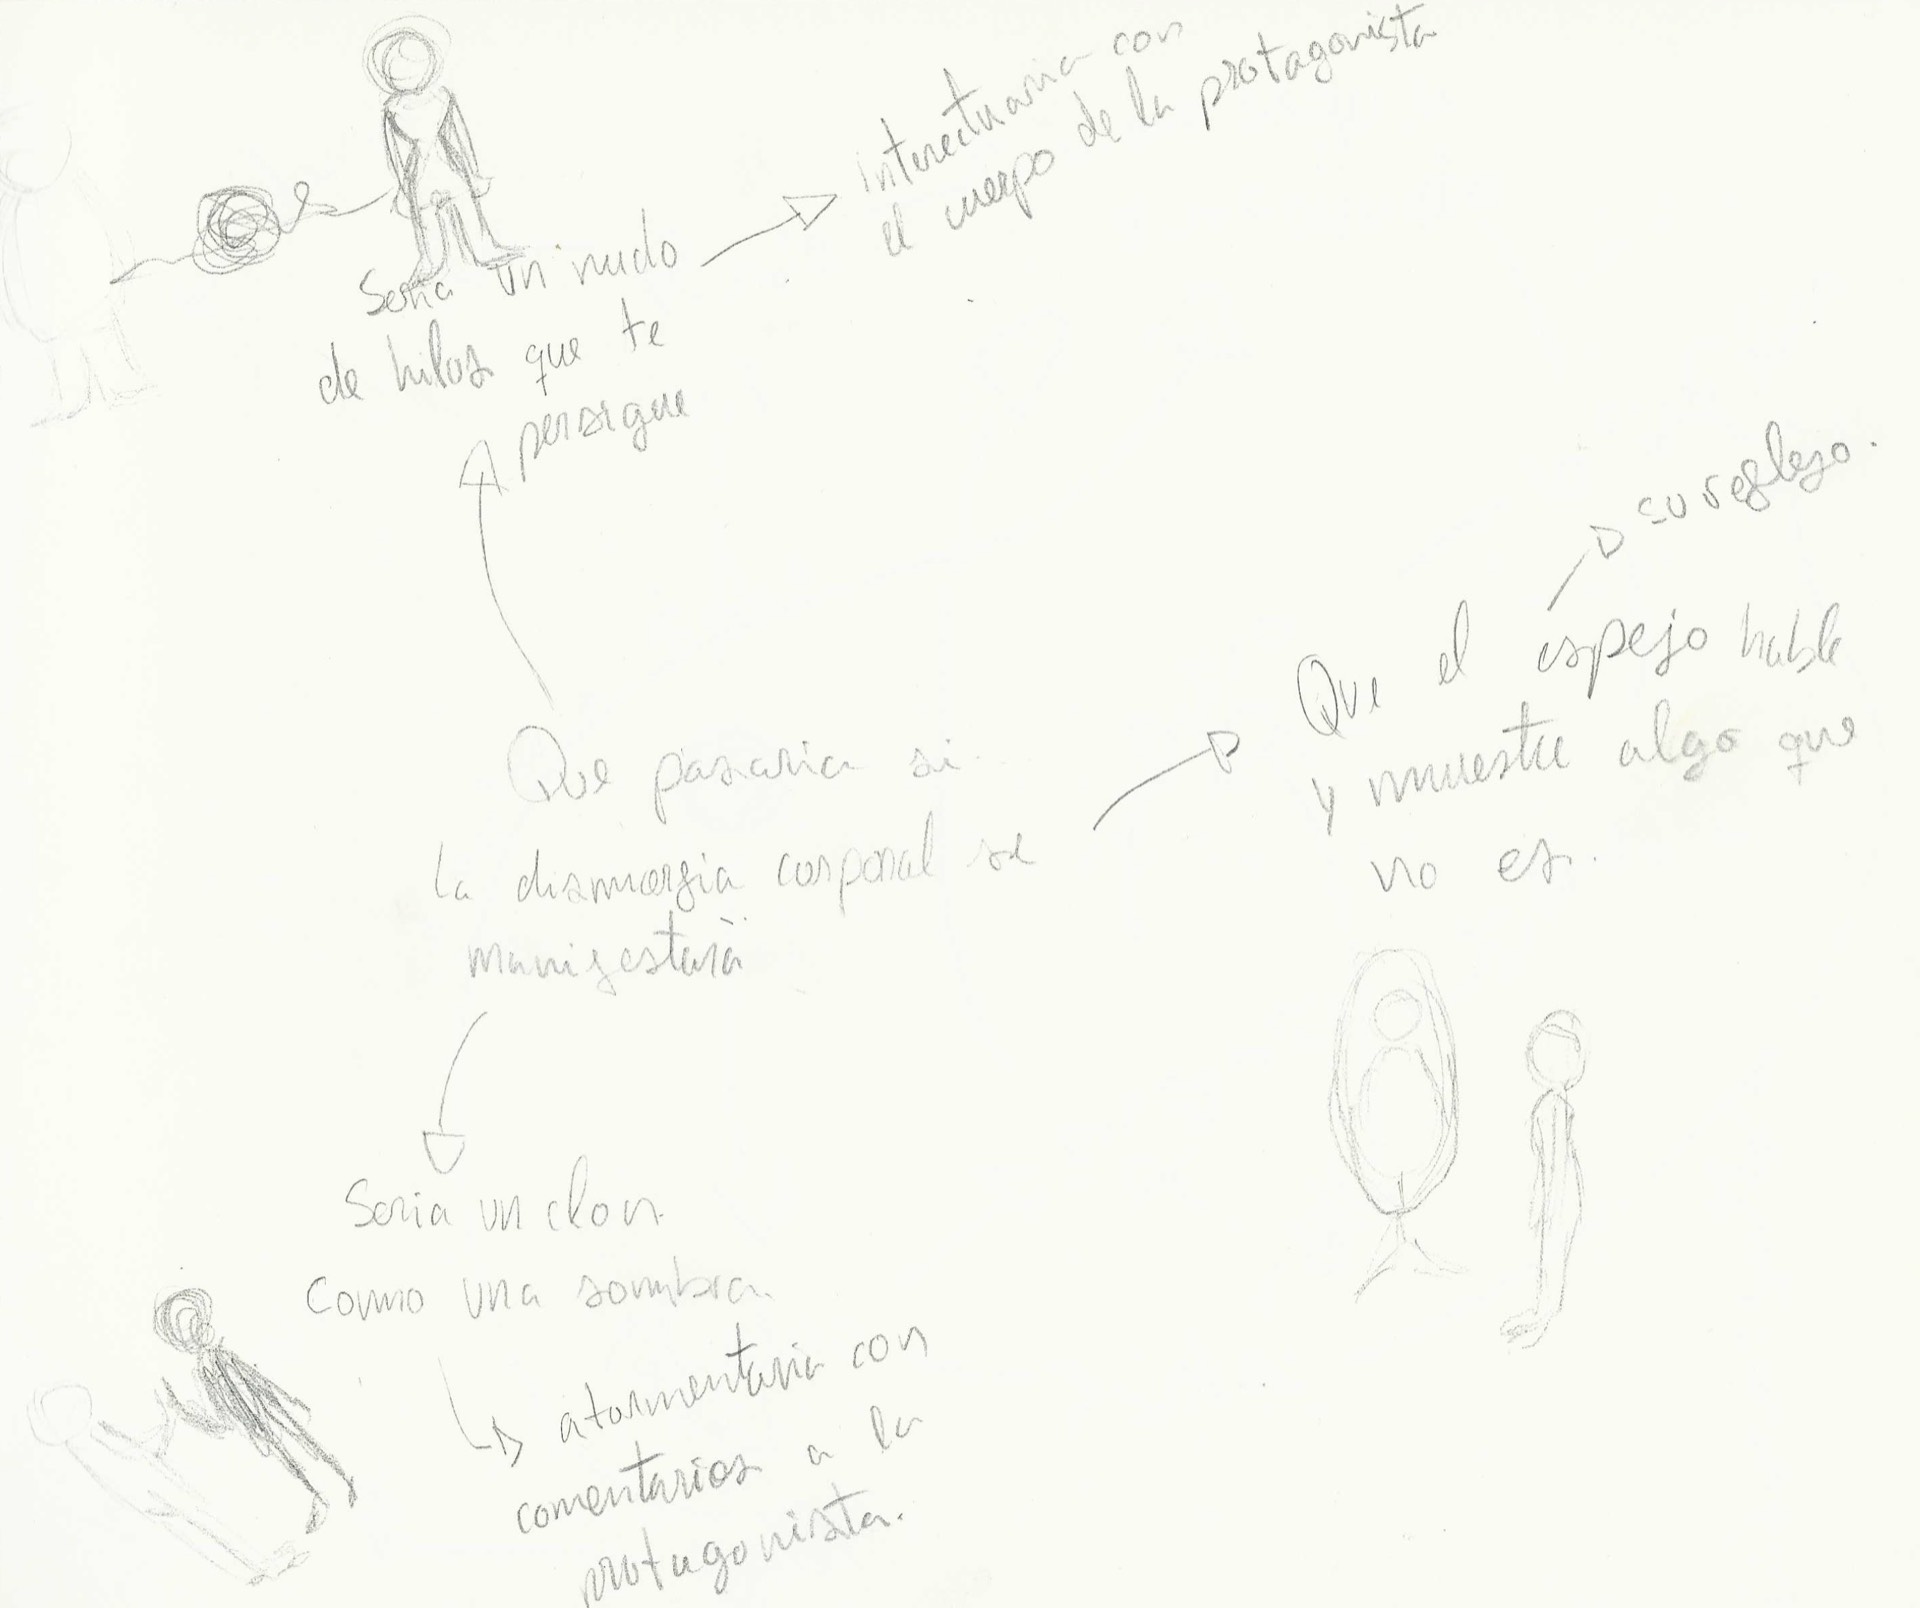 Seria un nudo
de hilos que te
persigue
interectuaria con
el cuerpo de la protagonista
su reflejo.
Que el espejo hable
y muestre algo que
no es.
Que pasaria si
la dismorfia corporal se
manifestará
Seria un clon
como una sombra
atormentaria con
comentarios a la
protagonista.